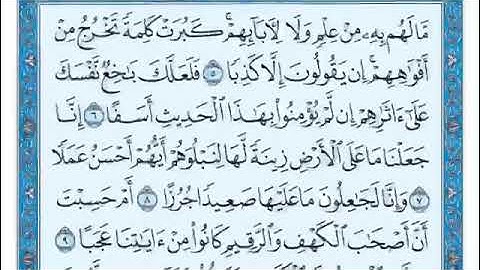 مَّا لَهُم بِهِۦ مِنْ عِلْمٍ وَلَا لِـَٔابَآئِهِمْ ۚ كَبُرَتْ كَلِمَةً تَخْرُجُ مِنْ
أَفْوَٰهِهِمْ ۚ إِن يَقُولُونَ إِلَّا كَذِبًا ٥ فَلَعَلَّكَ بَـٰخِعٌ نَّفْسَكَ
عَلَىٰٓ ءَاثَـٰرِهِمْ إِن لَّمْ يُؤْمِنُوا۟ بِهَـٰذَا ٱلْحَدِيثِ أَسَفًا ٦ إِنَّا
جَعَلْنَا مَا عَلَى ٱلْأَرْضِ زِينَةً لَّهَا لِنَبْلُوَهُمْ أَيُّهُمْ أَحْسَنُ عَمَلًا
٧ وَإِنَّا لَجَـٰعِلُونَ مَا عَلَيْهَا صَعِيدًا جُرُزًا ٨ أَمْ حَسِبْتَ
أَنَّ أَصْحَـٰبَ ٱلْكَهْفِ وَٱلرَّقِيمِ كَانُوا۟ مِنْ ءَايَـٰتِنَا عَجَبًا ٩